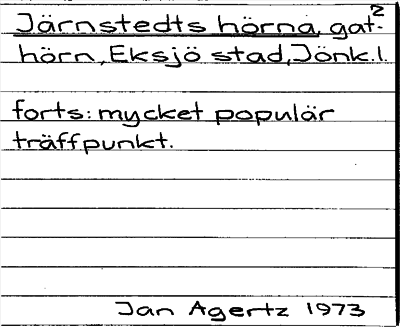 2
Järnstedts hörna, gat-
hörn, Eksjö stad, Jönk. l.
forts: mycket populär
träffpunkt.
Jan Agertz 1973